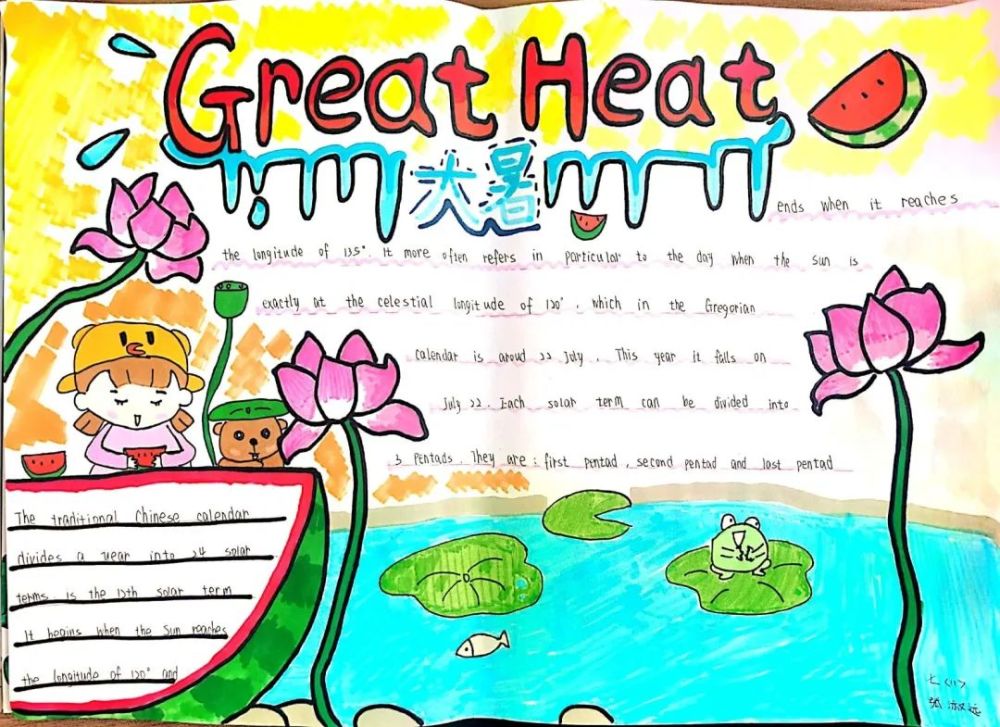 Great Heat
大暑
The traditional Chinese calendar
divides a year into 24 solar
terms. is the 12th solar term
It begins when the Sun reaches
the longitude of 120° and
ends when it reaches
the longitude of 135°. It more often refers in particular to the day when the sun is
exactly at the celestial longitude of 120°. which in the Gregorian
calendar is aroud 22 July. This year it falls on
July 22. Each solar term can be divided into
3 pentads. They are: first pentad, second pentad and last pentad